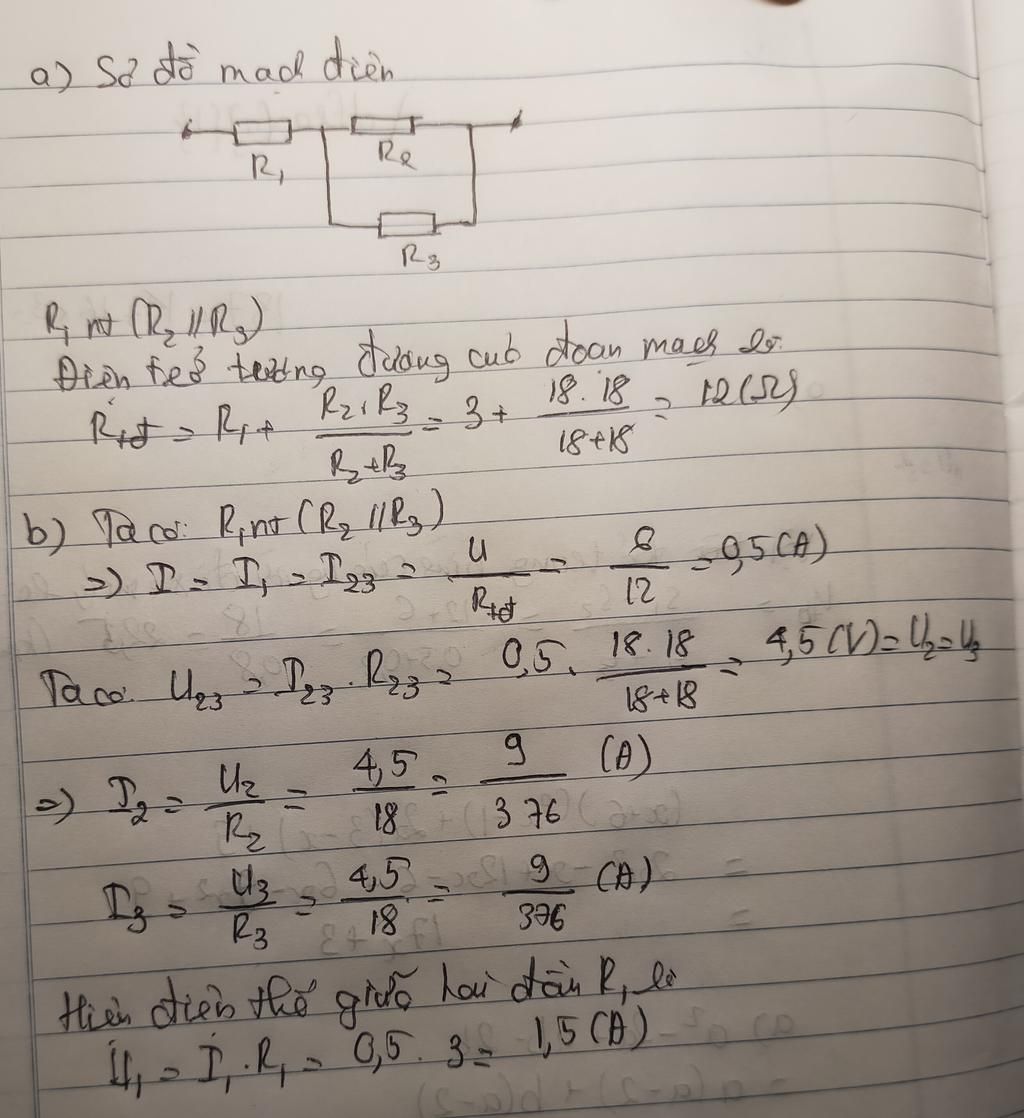 a) Sơ đồ mạch điện
R₁ R₂
R₃
R₁ nt (R₂ // R₃)
Điện trở tương đương của đoạn mạch là:
Rtđ = R₁ + (R₂.R₃)/(R₂+R₃) = 3 + (18.18)/(18+18) = 12 (Ω)
b) Ta có: R₁ nt (R₂ // R₃)
=) I = I₁ = I₂₃ = U/Rtđ = 6/12 = 0,5 (A)
Ta có: U₂₃ = I₂₃ . R₂₃ = 0,5 . (18.18)/(18+18) = 4,5 (V) = U₂ = U₃
=) I₂ = U₂/R₂ = 4,5/18 = 9/376 (A)
I₃ = U₃/R₃ = 4,5/18 = 9/376 (A)
Hiện điện thế giữa hai đầu R₁ là
U₁ = I₁ . R₁ = 0,5 . 3 = 1,5 (A)